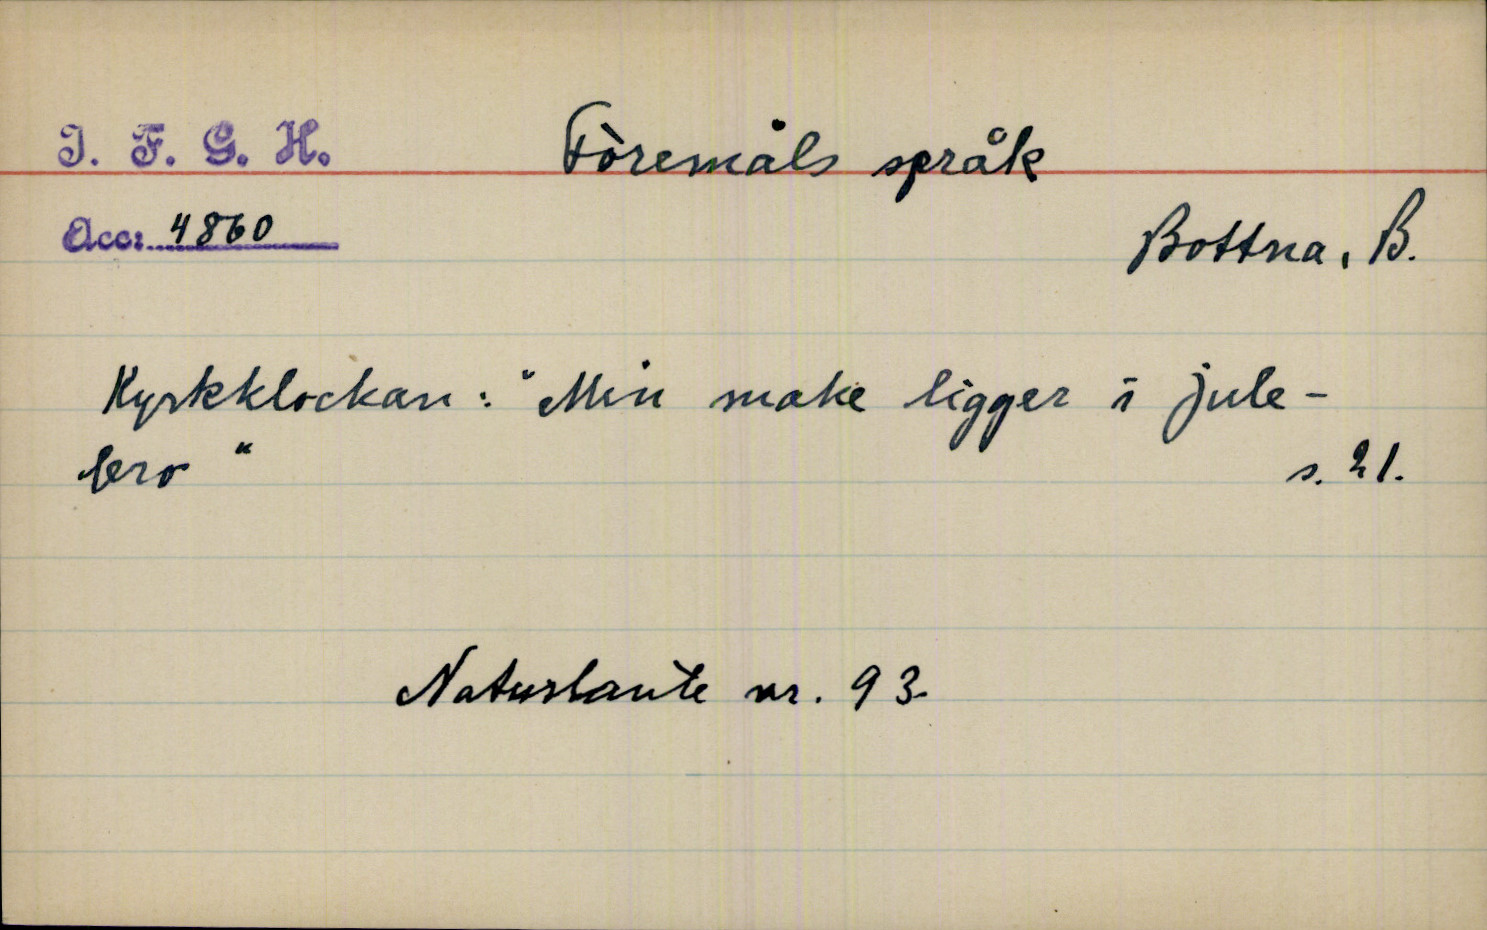 I. F. G. H.
Föremåls språk
Acc: 4860
Bottna, B.
Kyrkklockan: "Min make ligger i jule-
bro" s. 21.
Naturlaute nr. 93.